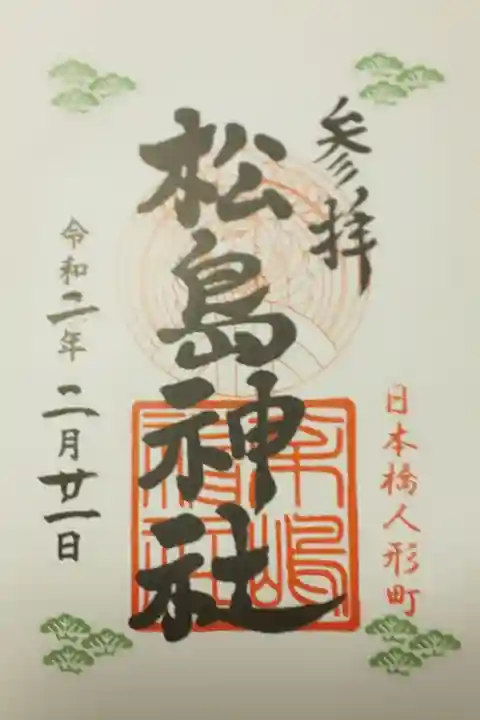 参拝
日本橋人形町
松島神社
令和二年二月廿一日